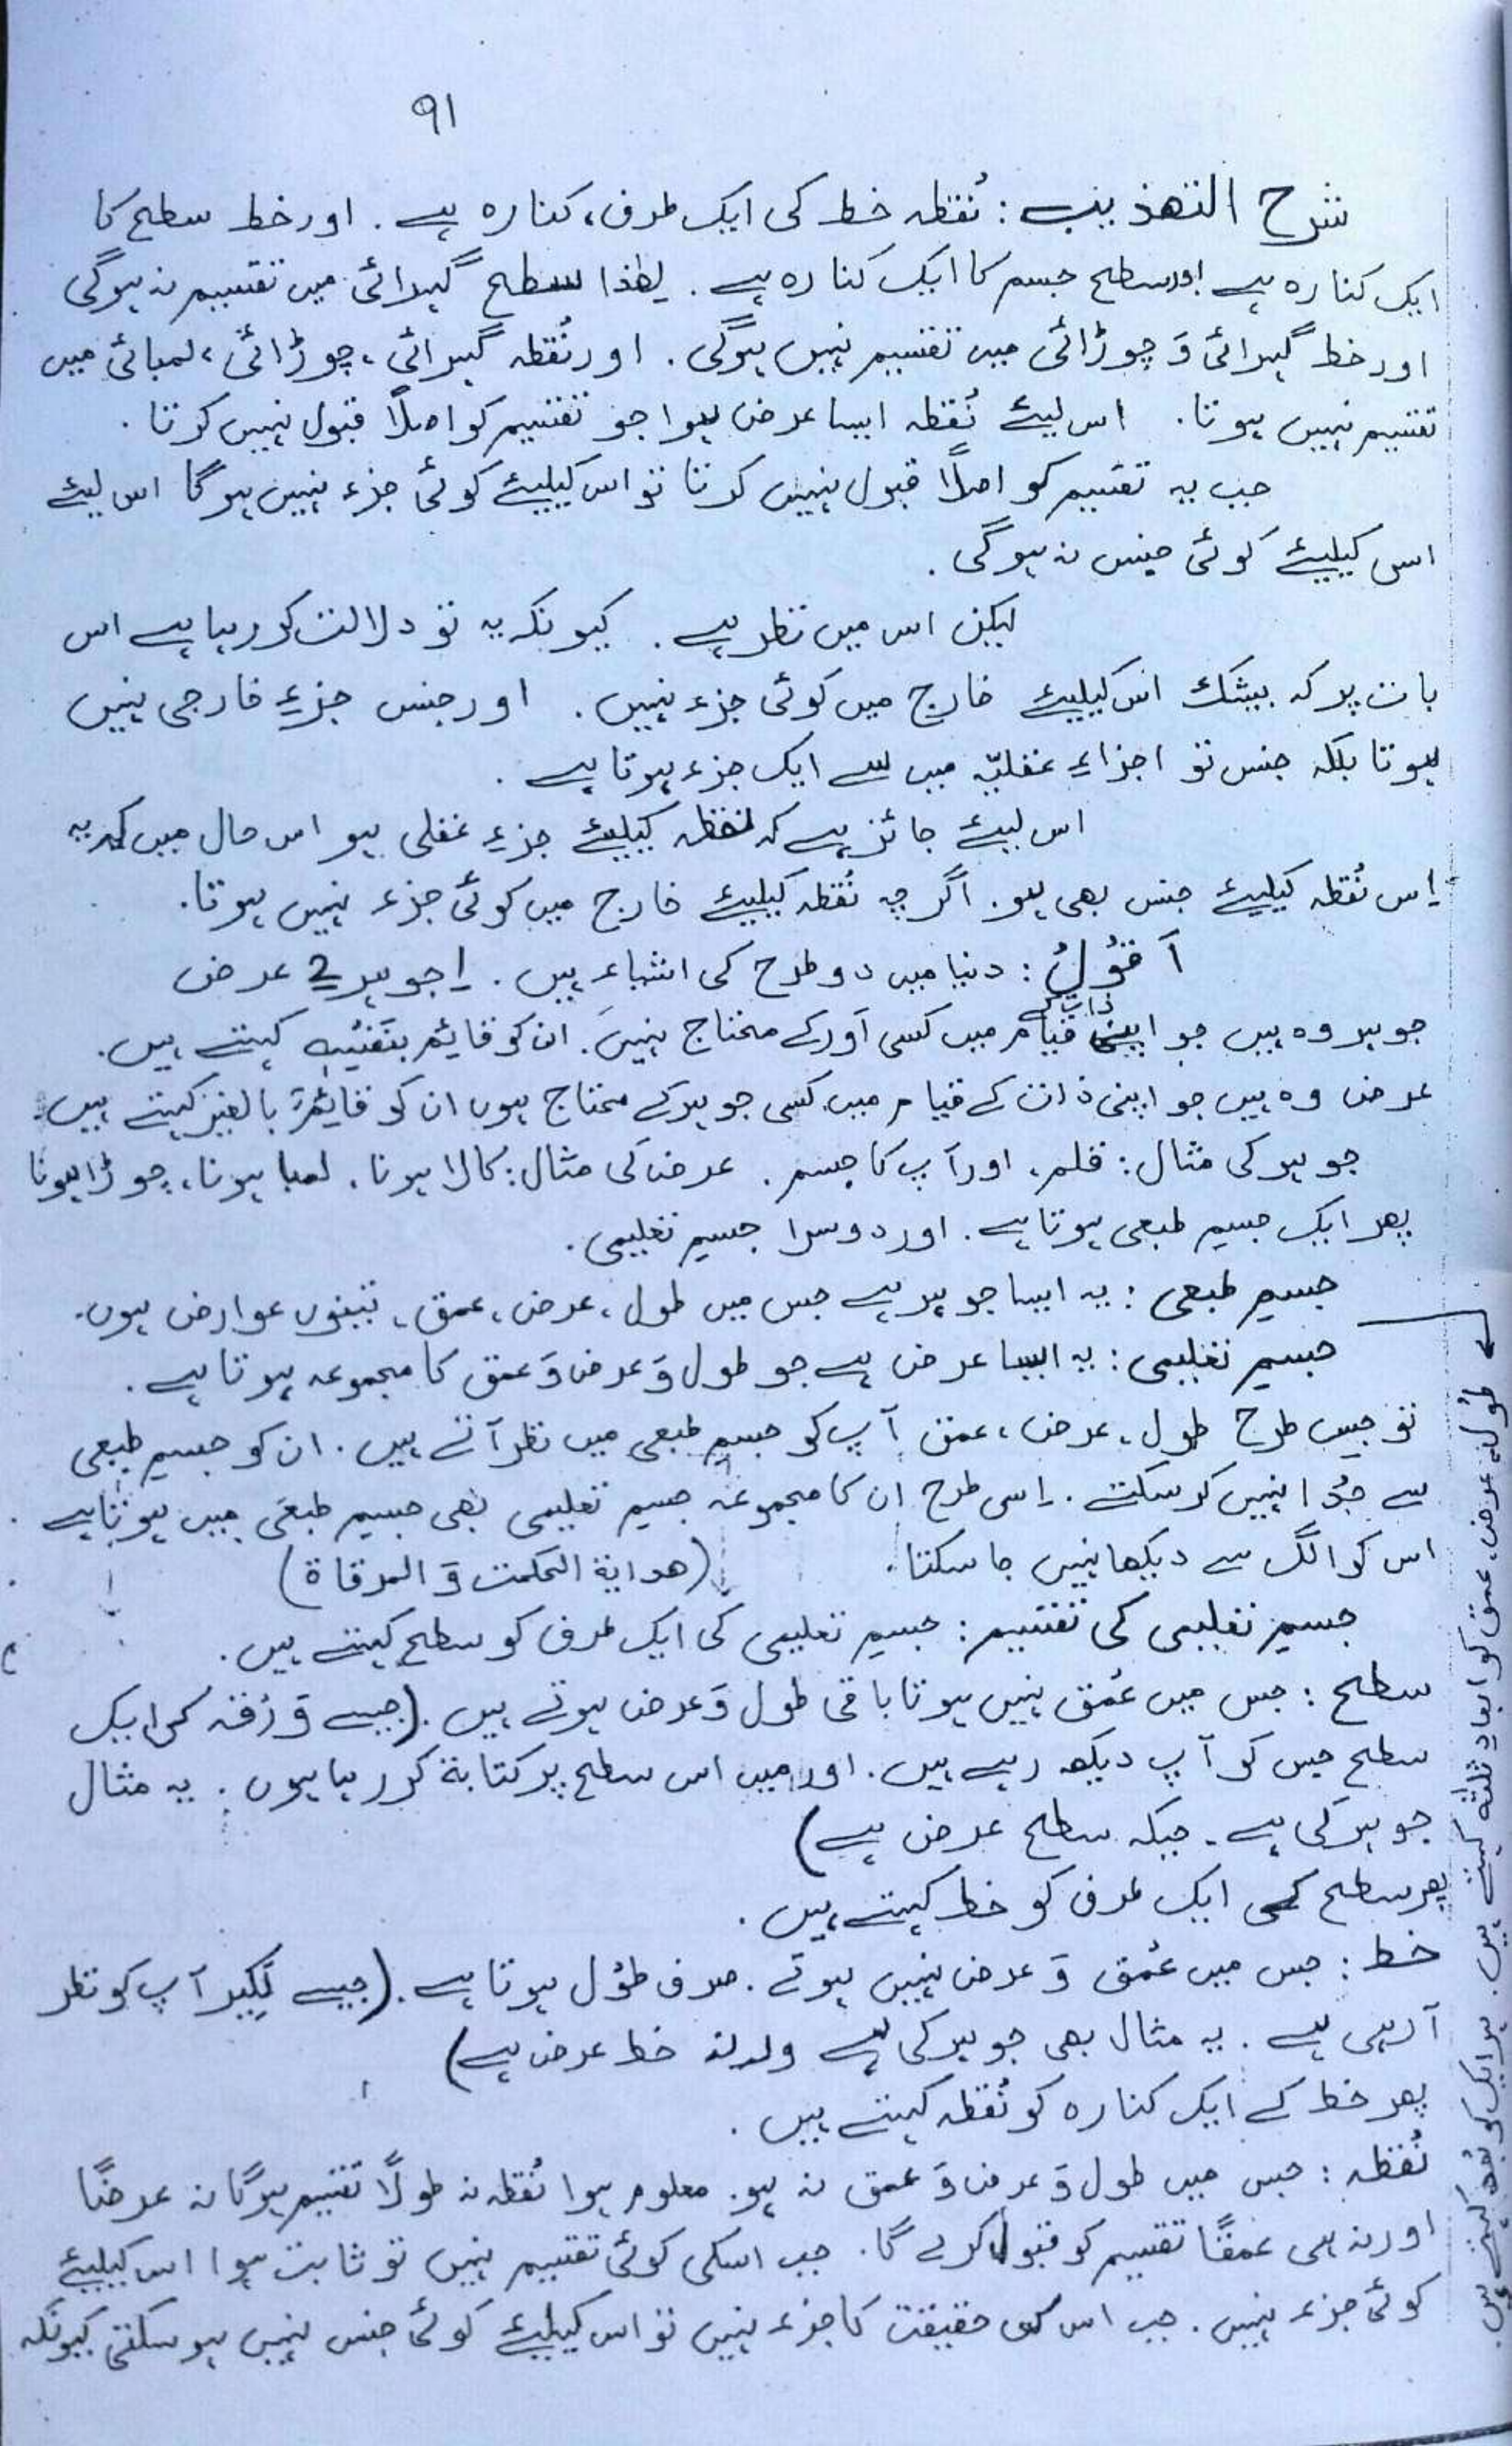 ۹۱
شرح التھذیب : نُقطہ خط کی ایک طرف، کنارہ ہے . اور خط سطح کا
ایک کنارہ ہے اور سطح جسم کا ایک کنارہ ہے . لھٰذا سطح گہرائی میں تقسیم نہ ہوگی
اور خط گہرائی وَ چوڑائی میں تقسیم نہیں ہوگی . اور نُقطہ گہرائی ، چوڑائی ، لمبائی میں
تقسیم نہیں ہوتا . اس لیئے نُقطہ ایسا عرض ہوا جو تقسیم کو اصلًا قبول نہیں کرتا .
جب یہ تقسیم کو اصلًا قبول نہیں کرتا تو اس کیلیئے کوئی جزء نہیں ہوگا اس لیئے
اس کیلیئے کوئی جنس نہ ہوگی .
لیکن اس میں نظر ہے . کیونکہ یہ تو دلالت کر رہا ہے اس
بات پر کہ بیشک اس کیلیئے خارج میں کوئی جزء نہیں . اور جنس جزءِ خارجی نہیں
ہوتا بلکہ جنس تو اجزاءِ عقلیّہ میں سے ایک جزء ہوتا ہے .
اس لیئے جائز ہے کہ نقطہ کیلیئے جزءِ عقلی ہو اس حال میں کہ یہ
اِس نُقطہ کیلیئے جنس بھی ہو . اگرچہ نُقطہ کیلیئے خارج میں کوئی جزء نہیں ہوتا .
اَقُوْلُ : دنیا میں دو طرح کی اشیاء ہیں . 1 جوہر 2 عرض
جوہر وہ ہیں جو اپنی ذات کے قیام میں کسی اَور کے محتاج نہیں . ان کو قایٔم بنَفْسِہٖ کہتے ہیں .
عرض وہ ہیں جو اپنی ذات کے قیام میں کسی جوہر کے محتاج ہوں ان کو قایٔم بالغیر کہتے ہیں .
جوہر کی مثال : قلم ، اور آپ کا جسم . عرض کی مثال : کالا ہونا ، لمبا ہونا ، چوڑا ہونا
پھر ایک جسمِ طبعی ہوتا ہے . اور دوسرا جسمِ تعلیمی .
جسمِ طبعی : یہ ایسا جوہر ہے جس میں طول ، عرض ، عمق ، تینوں عوارض ہوں .
جسمِ تعلیمی : یہ ایسا عرض ہے جو طول وَ عرض وَ عمق کا مجموعہ ہوتا ہے .
تو جیسں طرح طول ، عرض ، عمق آپ کو جسمِ طبعی میں نظر آتے ہیں . ان کو جسمِ طبعی
سے جُدا نہیں کر سکتے . اِسی طرح ان کا مجموعہ جسمِ تعلیمی بھی جسمِ طبعی میں ہوتا ہے
اس کو الگ سے دیکھا نہیں جا سکتا . (ھدایة الحکمت وَ المرقاة)
جسمِ تعلیمی کی تقسیم : جسمِ تعلیمی کی ایک طرف کو سطح کہتے ہیں .
سطح : جس میں عُمق نہیں ہوتا باقی طول وَ عرض ہوتے ہیں . (جیسے وَرَقہ کی ایک
سطح جس کو آپ دیکھ رہے ہیں . اور میں اس سطح پر کتابة کر رہا ہوں . یہ مثال
جوہر کی ہے . جبکہ سطح عرض ہے)
پھر سطح کی ایک طرف کو خط کہتے ہیں .
خط : جس میں عُمق وَ عرض نہیں ہوتے . صرف طوُل ہوتا ہے . (جیسے لَکِیر آپ کو نظر
آرہی ہے . یہ مثال بھی جوہر کی ہے ورنہ خط عرض ہے)
پھر خط کے ایک کنارہ کو نُقطہ کہتے ہیں .
نُقطہ : جس میں طول وَ عرض وَ عمق نہ ہو . معلوم ہوا نُقطہ نہ طولًا تقسیم ہوگا نہ عرضًا
اور نہ ہی عمقًا تقسیم کو قبول کرے گا . جب اسکی کوئی تقسیم نہیں تو ثابت ہوا اس کیلیئے
کوئی جزء نہیں . جب اس کی حقیقت کا جزء نہیں تو اس کیلیئے کوئی جنس نہیں ہو سکتی کیونکہ
طُول ، عرض ، عمق کو ابعادِ ثلٰثہ کہتے ہیں . ہر ایک کو بُعد کہتے ہیں .